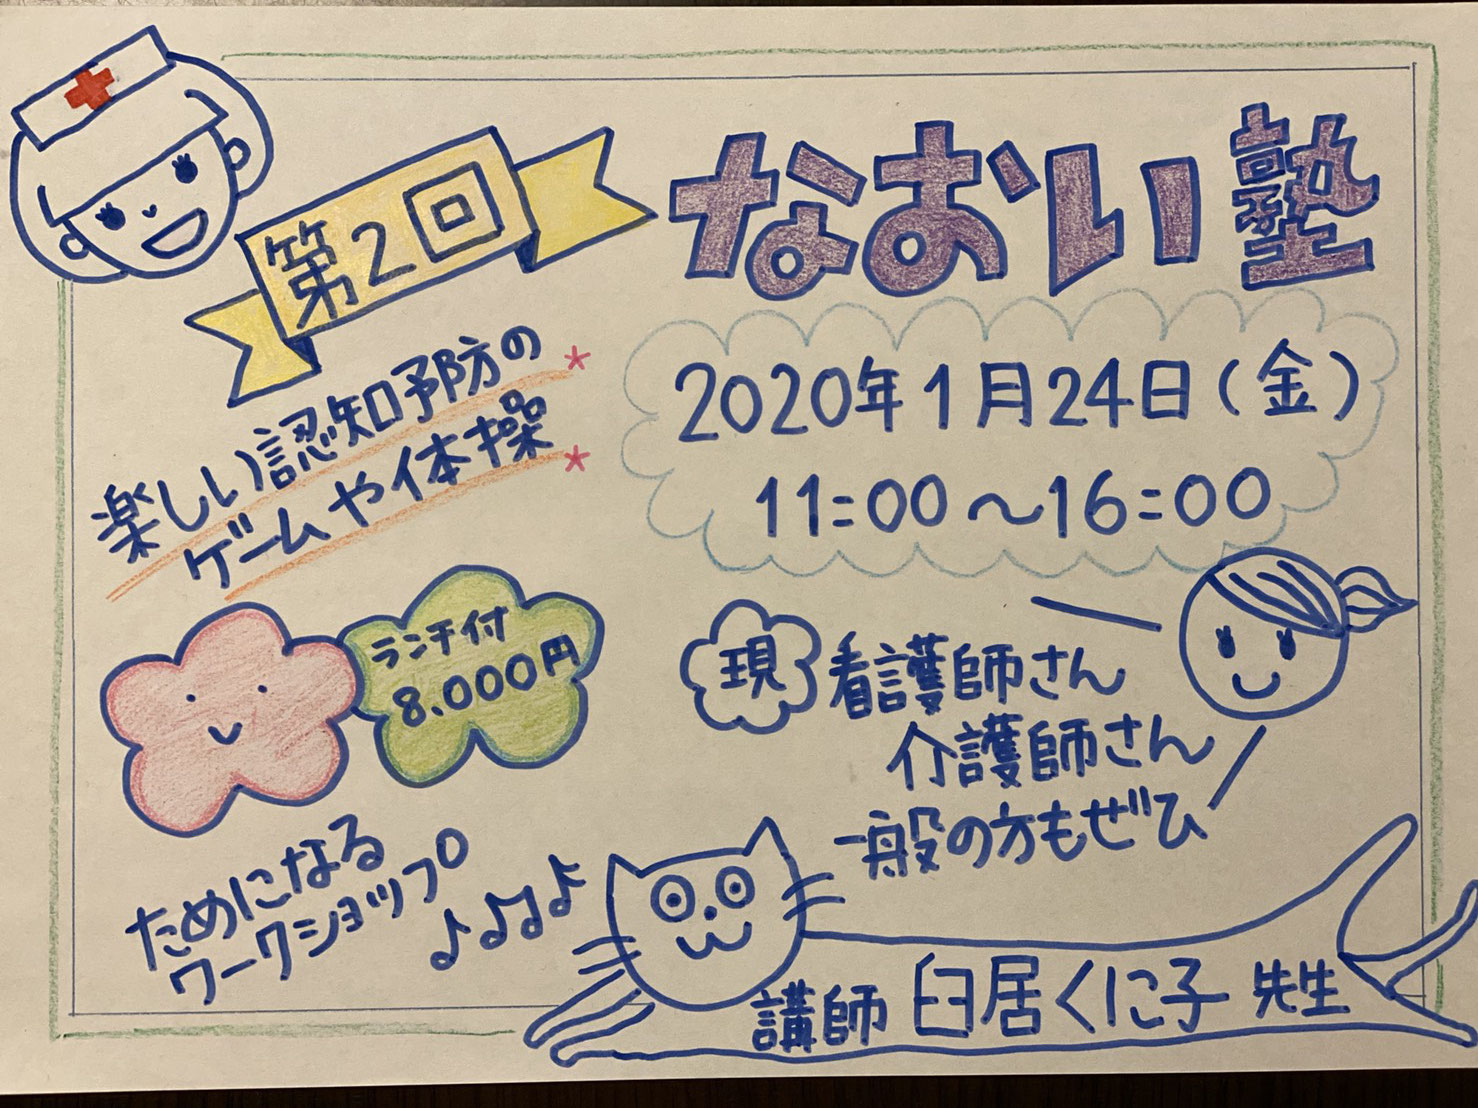 第2回
なおい塾
楽しい認知予防の*
ゲームや体操*
2020年1月24日(金)
11:00〜16:00
ランチ付
8.000円
現 看護師さん
介護師さん
一般の方もぜひ
ためになる
ワークショップ
♪♪♫♪
講師 臼居くに子 先生